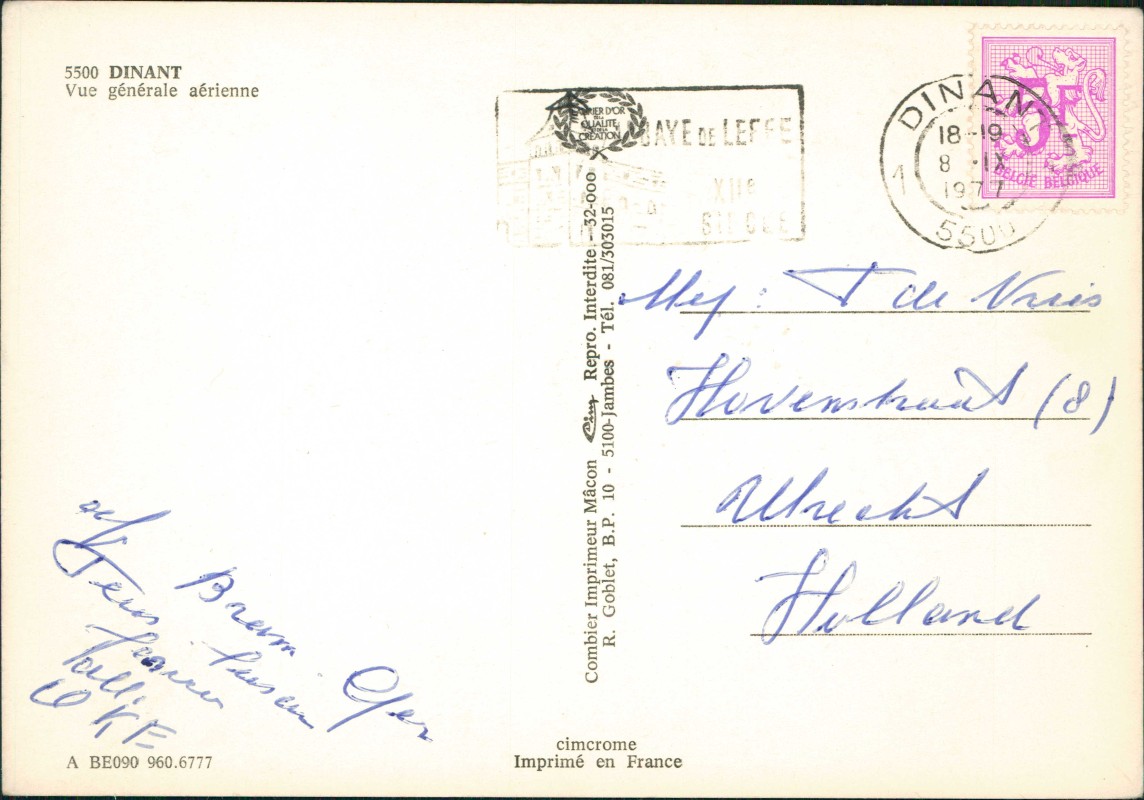 5500 DINANT
Vue générale aérienne
LAURIER D'OR
DE LA
QUALITÉ
CRÉATION
BAYE DE LEFFE
XIIe
SIECLE
DINANT
18-19
8 -IX
1977
1
5500
5F
BELGIE BELGIQUE
Mej: T de Vries
Hovenstraat (8)
Utrecht
Holland
Combier Imprimeur Mâcon Cim Repro. Interdite - 32-000
R. Goblet, B.P. 10 - 5100-Jambes - Tél. 081/303015
Bram
Ger
cimcrome
Imprimé en France
A BE090 960.6777